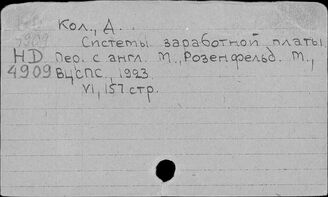 Кол., Д. . .
4909 Системы заработной платы.
HD Пер. с англ. М., Розенфельд. М.,
4909 ВЦСПС, 1923.
VI, 157 стр.